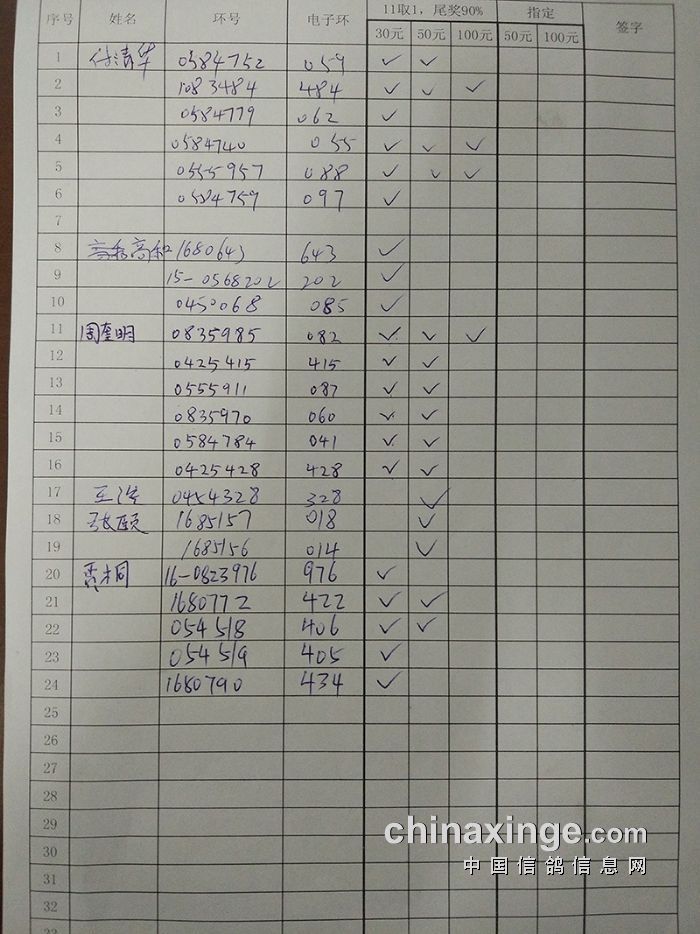 序号 姓名 环号 电子环 11取1，尾奖90% 指定 签字
30元 50元 100元 50元 100元
1 付清华 0584752 059 ✓ ✓
2 1083484 484 ✓ ✓ ✓
3 0584779 062 ✓
4 0584740 055 ✓ ✓ ✓
5 0555957 088 ✓ ✓ ✓
6 0584759 097 ✓
7
8 高和 1680643 643 ✓
9 15-0568202 202 ✓
10 0450068 085 ✓
11 周奎明 0835985 082 ✓ ✓ ✓
12 0425415 415 ✓ ✓
13 0555911 087 ✓ ✓
14 0835970 060 ✓ ✓
15 0584784 041 ✓ ✓
16 0425428 428 ✓ ✓
17 0454328 328 ✓
18 张颐 1685157 018 ✓
19 1685156 014 ✓
20 贾桐 16-0823976 976 ✓
21 1680772 422 ✓ ✓
22 054518 406 ✓ ✓
23 054519 405 ✓
24 1680790 434 ✓
25
26
27
28
29
30
31
32
chinaxinge.com
中国信鸽信息网